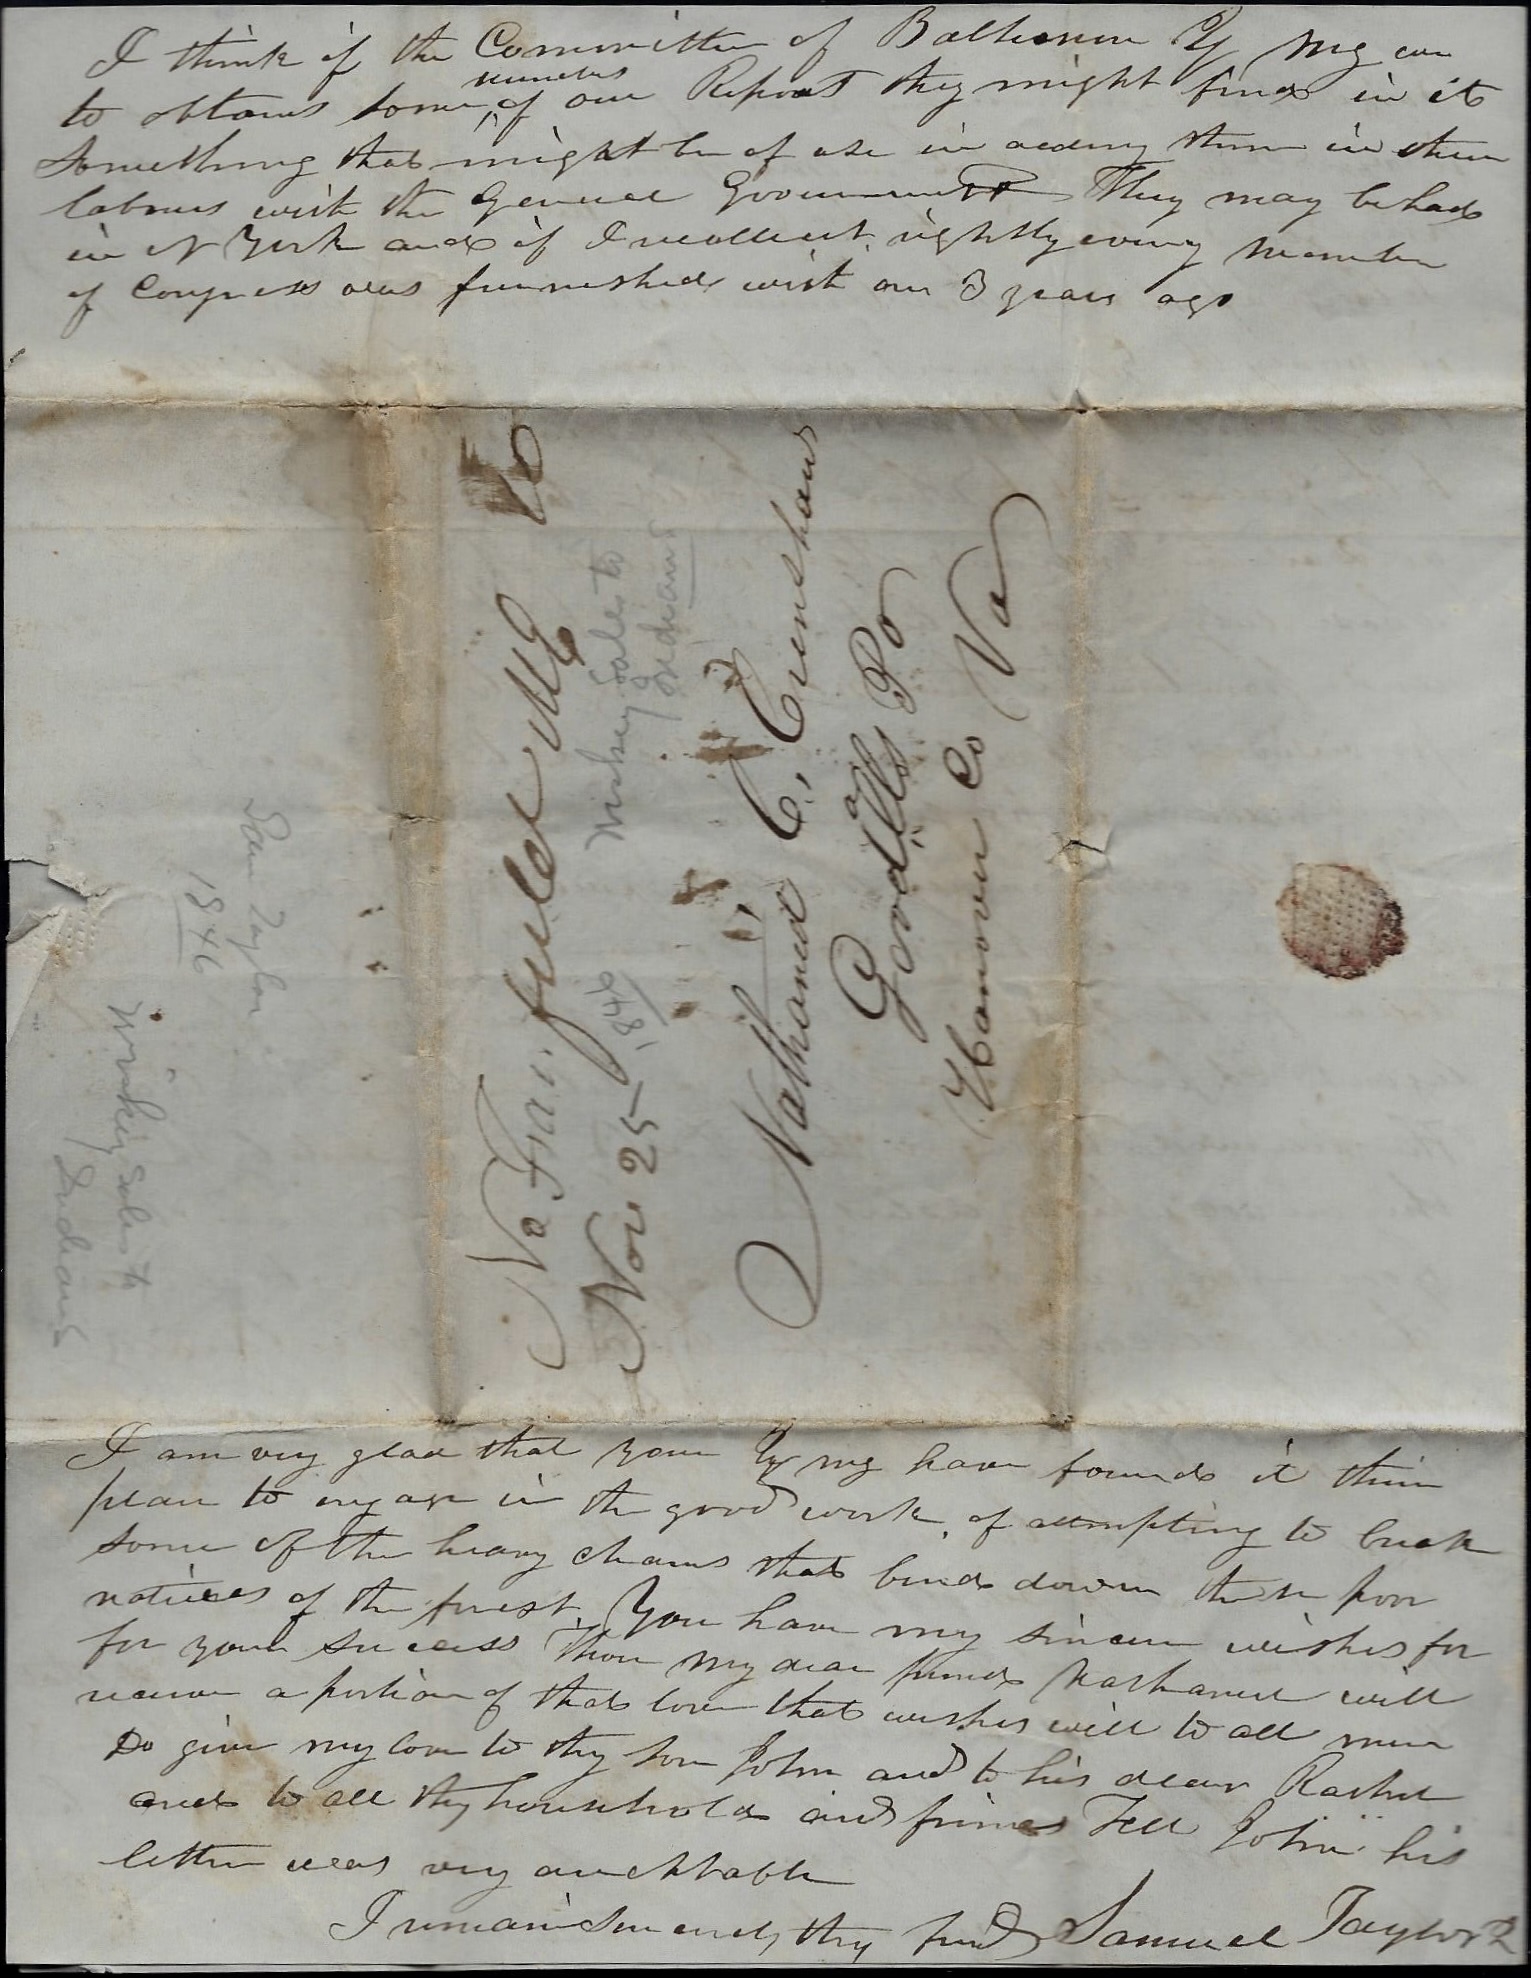 I think if the Committee of Baltimore Y Mg can
to obtain some numbers of our Report they might find in it
something that might be of use in aiding them in their
labours with the General Government They may be had
in N York and if I recollect rightly every member
of Congress was furnished with one 3 years ago
No Fairfield Me 10
Nov 25
1846
Wiskey Sales to
Indians
Nathaniel C, Crenshaw
Goodalls Po
Hanover Co Va
Sam Taylor
1846
Wiskey Sales to
Indians
I am very glad that your Yy mg have found it their
place to engage in the good work, of attempting to break
some of the heavy chains that bind down the poor
natives of the forest. You have my sincere wishes for
for your success Thou my dear friend Nathaniel will
receive a portion of that love that wishes well to all men
Do give my love to thy son John and to his dear Rachel
and to all thy household and friends Tell John his
letter was very acceptable
I remain sincerely thy friend Samuel Taylor